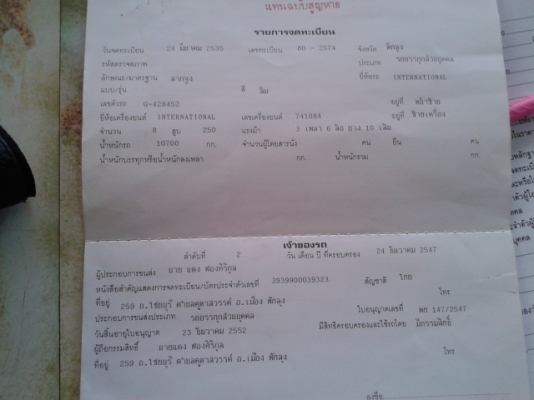 แทนฉบับสูญหาย
รายการจดทะเบียน
วันจดทะเบียน 24 มีนาคม 2535 เลขทะเบียน 80 - 2574 จังหวัด พัทลุง
รหัสตรวจสภาพ ประเภท รถบรรทุกส่วนบุคคล
ลักษณะ/มาตรฐาน ลากจูง ยี่ห้อรถ INTERNATIONAL
แบบ/รุ่น สี ส้ม
เลขตัวรถ G-428452 อยู่ที่
ยี่ห้อเครื่องยนต์ INTERNATIONAL เลขเครื่องยนต์ 741084 อยู่ที่ ซ้ายเครื่อง
จำนวน 8 สูบ 250 แรงม้า 3 เพลา 6 ล้อ ยาง 10 เส้น
น้ำหนักรถ 10700 กก. จำนวนผู้โดยสารนั่ง คน ยืน คน
น้ำหนักบรรทุกหรือน้ำหนักลงเพลา กก. น้ำหนักรวม กก.
เจ้าของรถ
ลำดับที่ 2 วัน เดือน ปี ที่ครอบครอง 24 ธันวาคม 2547
ผู้ประกอบการขนส่ง นาย แดง
หนังสือสำคัญแสดงการจดทะเบียน/บัตรประจำตัวเลขที่ 3939900039323 สัญชาติ ไทย
ที่อยู่ 259 ถ.ไชยบุรี ตำบลคูหาสวรรค์ อ.เมือง พัทลุง โทร
ประกอบการขนส่งประเภท รถบรรทุกส่วนบุคคล ใบอนุญาตเลขที่ พท 147/2547
วันสิ้นอายุใบอนุญาต 23 ธันวาคม 2552 มีสิทธิครอบครองและใช้รถโดย มีกรรมสิทธิ์
ผู้ถือกรรมสิทธิ์ นายแดง
ที่อยู่ 259 ถ.ไชยบุรี ตำบลคูหาสวรรค์ อ.เมือง พัทลุง โทร
ลงชื่อ